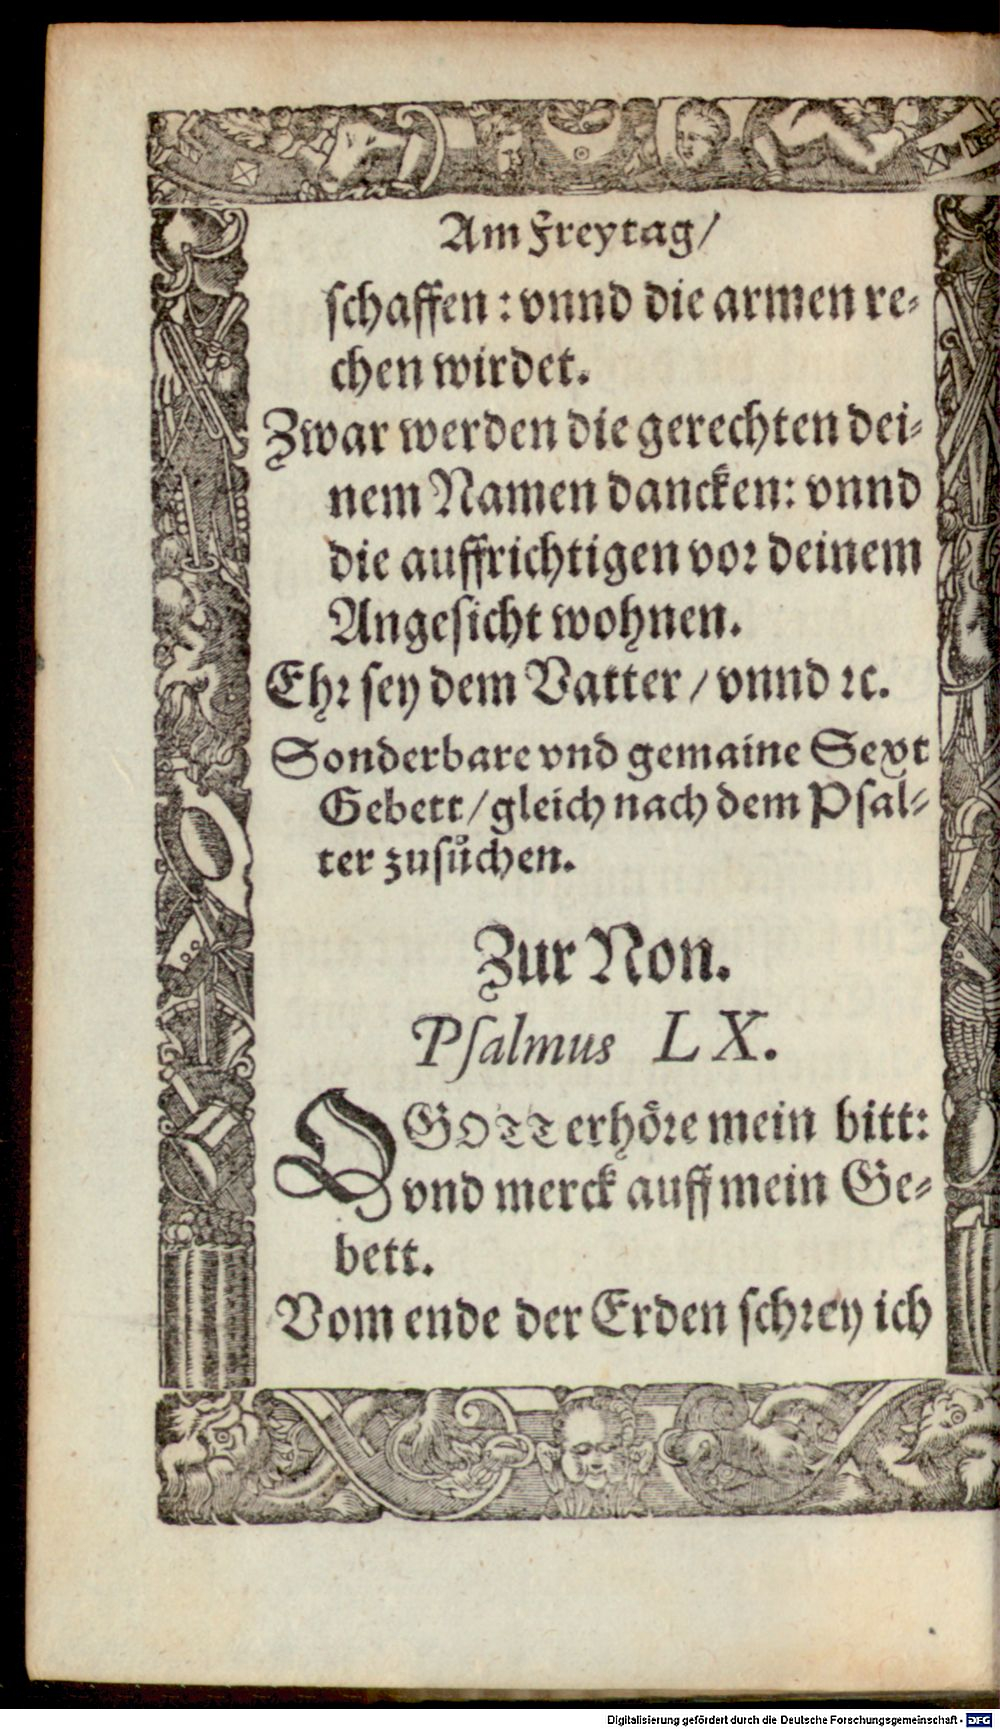 Am Freytag/
schaffen: vnnd die armen re-
chen wirdet.
Zwar werden die gerechten dei-
nem Namen dancken: vnnd
die auffrichtigen vor deinem
Angesicht wohnen.
Ehr sey dem Vatter / vnnd ꝛc.
Sonderbare vnd gemaine Sext
Gebett/gleich nach dem Psal-
ter zusůchen.
Zur Non.
Psalmus LX.
O GOTT erhöre mein bitt:
vnd merck auff mein Ge-
bett.
Vom ende der Erden schrey ich
Digitalisierung gefördert durch die Deutsche Forschungsgemeinschaft - DFG